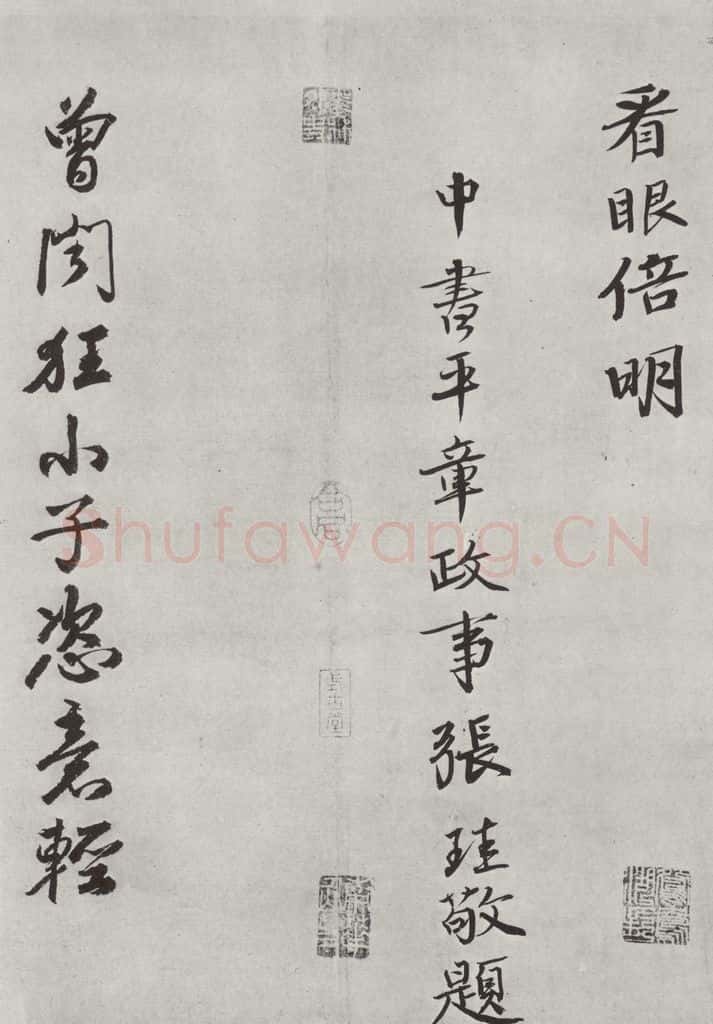 看眼倍明
中書平章政事張珪敬題
曾聞狂小子恣意輕
Shufawang.CN